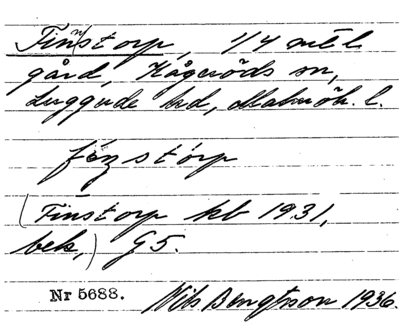 Fin(n)storp, 1/4 mtl
gård, Kågeröds sn,
Luggude hd, Malmöh. l.
fenstórp
(Finstorp kb 1931,
bek,) G5.
Nr 5688.
Nils Bengtsson 1936.